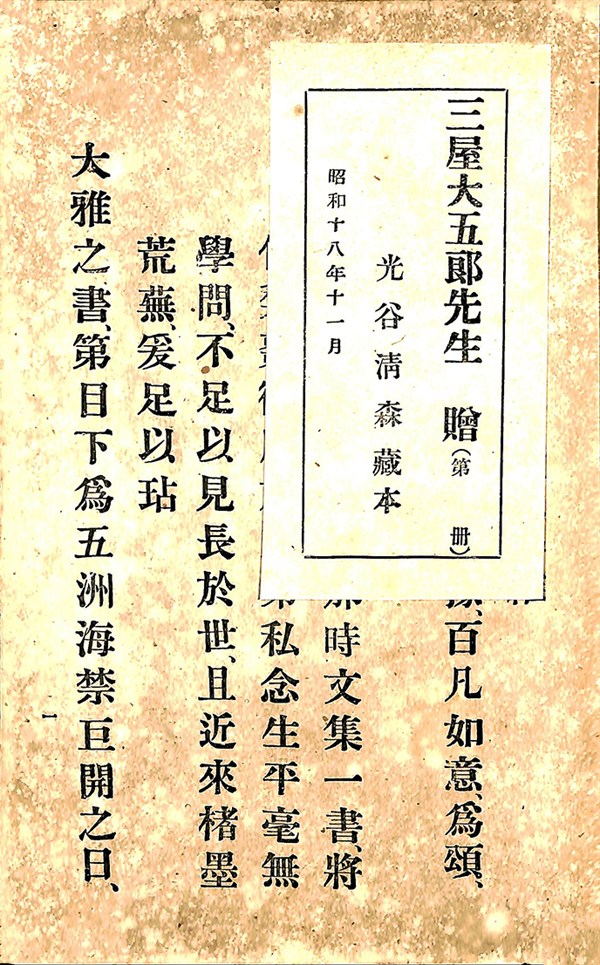 三屋大五郎先生 贈(第 冊)
光谷清森藏本
昭和十八年十一月
百凡如意、爲頌、
時文集一書、將
私念生平毫無
學問、不足以見長於世、且近來楮墨
荒蕪、爰足以玷
大雅之書、第目下爲五洲海禁巨開之日、
一